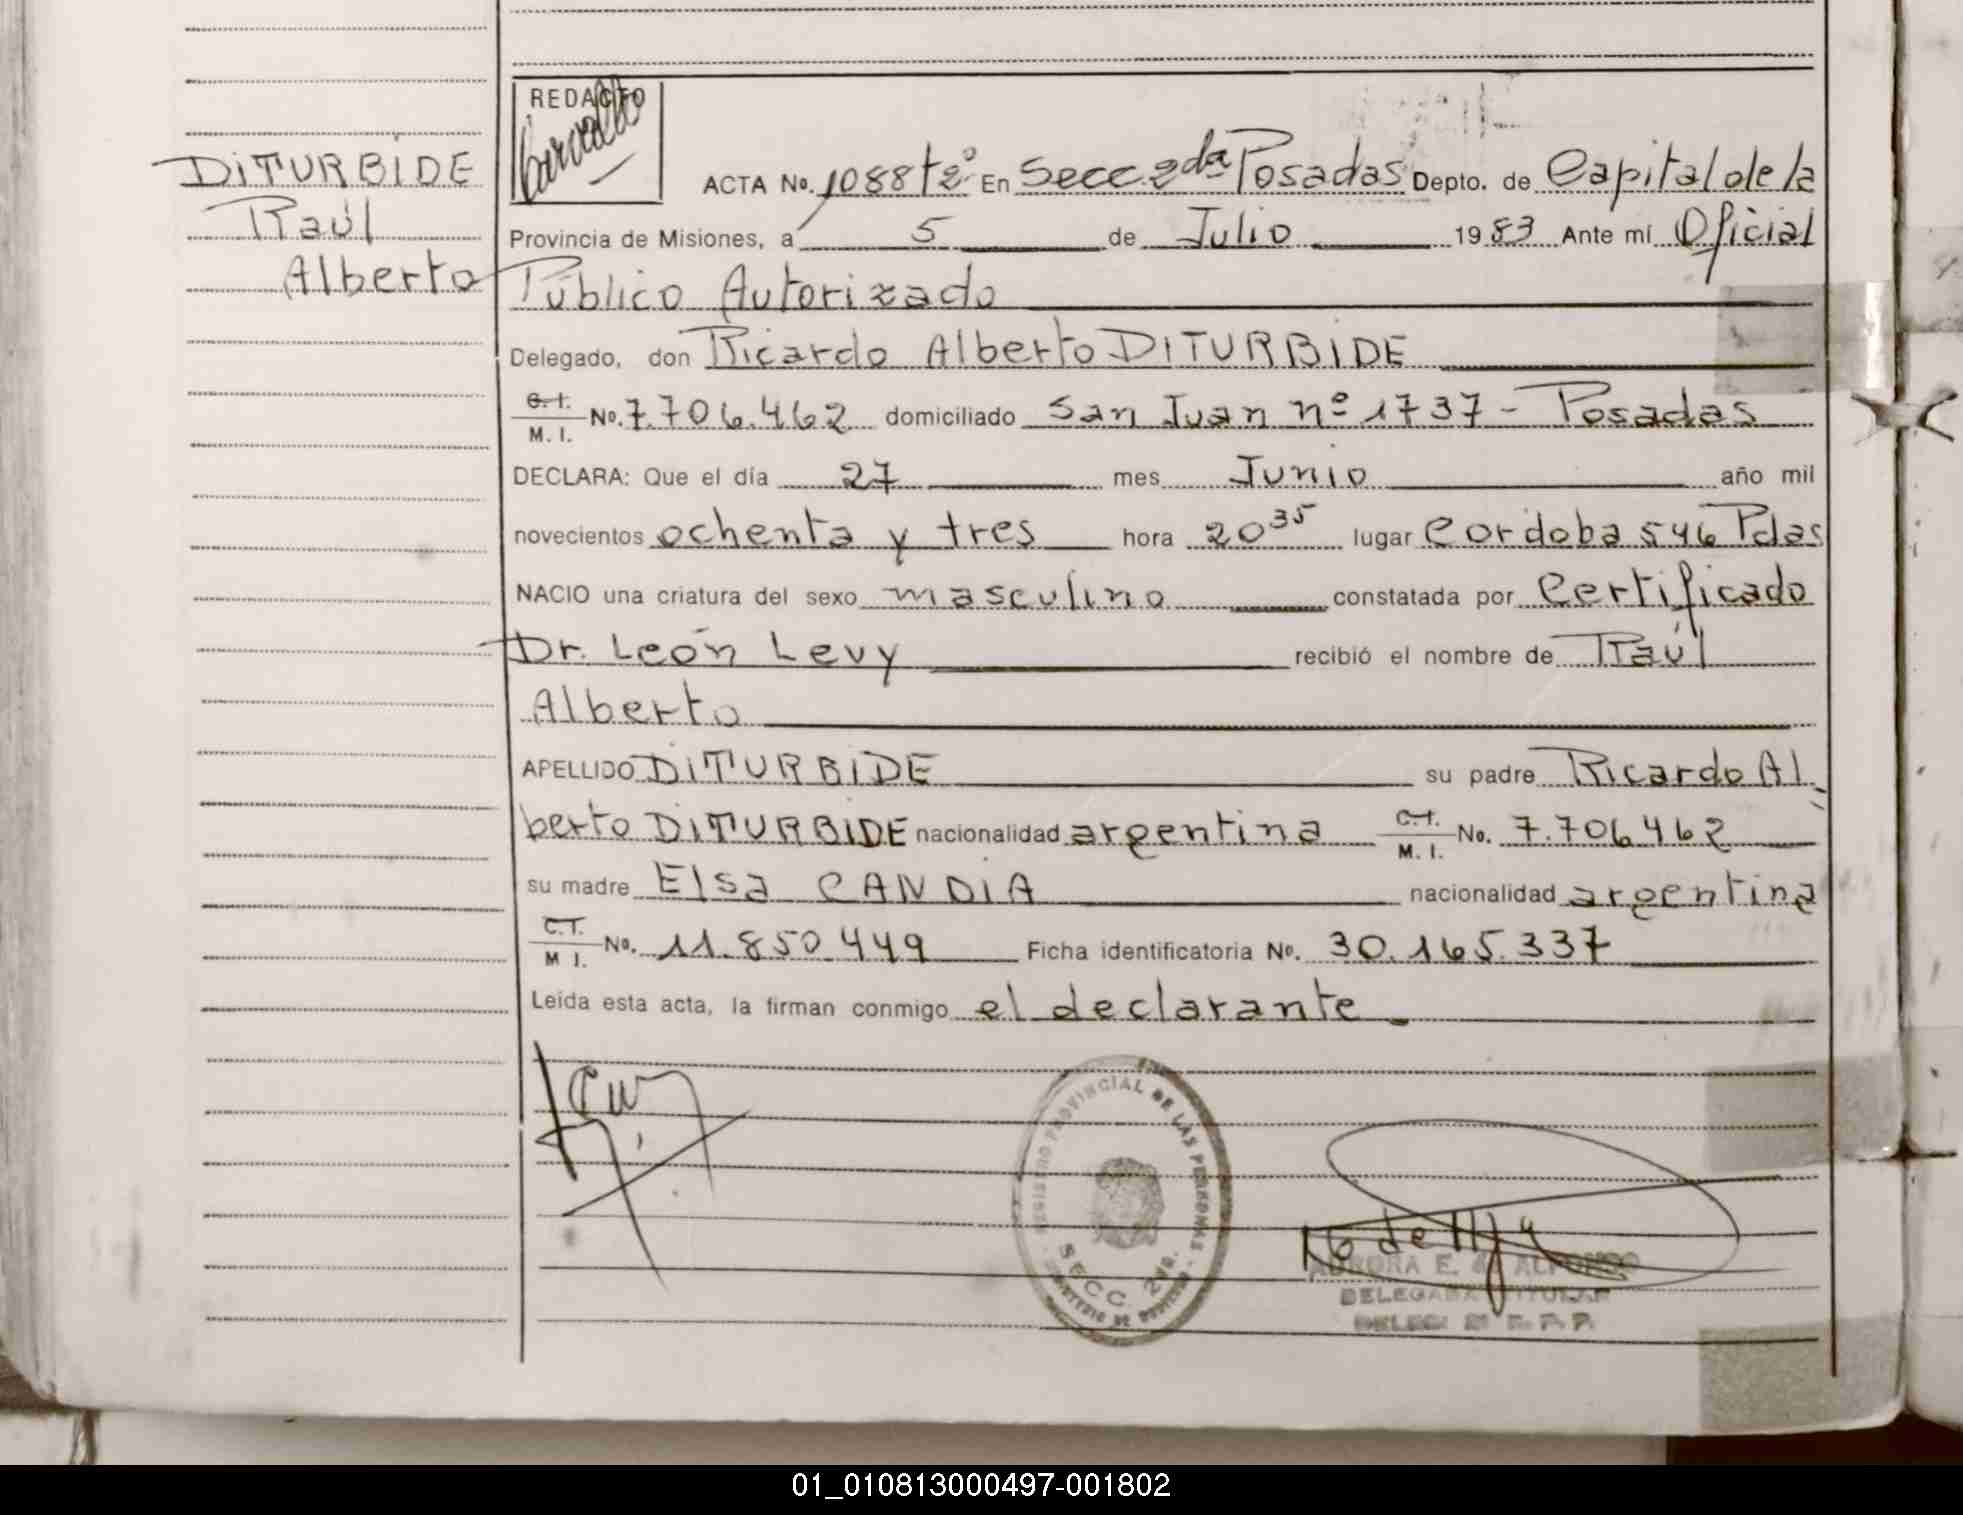 DiTURBIDE
Raúl
Alberto
REDACTO
ACTA No. 1088 tº2º En Secc. 2da Posadas Depto. de Capital de la
Provincia de Misiones, a 5 de Julio 1983 Ante mí Oficial
Público Autorizado
Delegado, don Ricardo Alberto DITURBIDE
C. I.
M. I. No. 7.706.462 domiciliado San Juan nº 1737 - Posadas
DECLARA: Que el día 27 mes Junio año mil
novecientos ochenta y tres hora 20 35 lugar Cordoba 546 Pdas
NACIO una criatura del sexo masculino constatada por Certificado
Dr. León Levy recibió el nombre de Raúl
Alberto
APELLIDO DiTURBIDE su padre Ricardo Al
berto DiTURBIDE nacionalidad argentina C. I. M. I. No. 7.706462
su madre Elsa CANDIA nacionalidad argentina
C. I.
M I. No. 11.850.449 Ficha identificatoria No. 30.165.337
Leída esta acta, la firman conmigo el declarante.
REGISTRO PROVINCIAL DE LAS PERSONAS
SECC. 2da.
AURORA E. ALFONSO
DELEGADA TITULAR
01_010813000497-001802